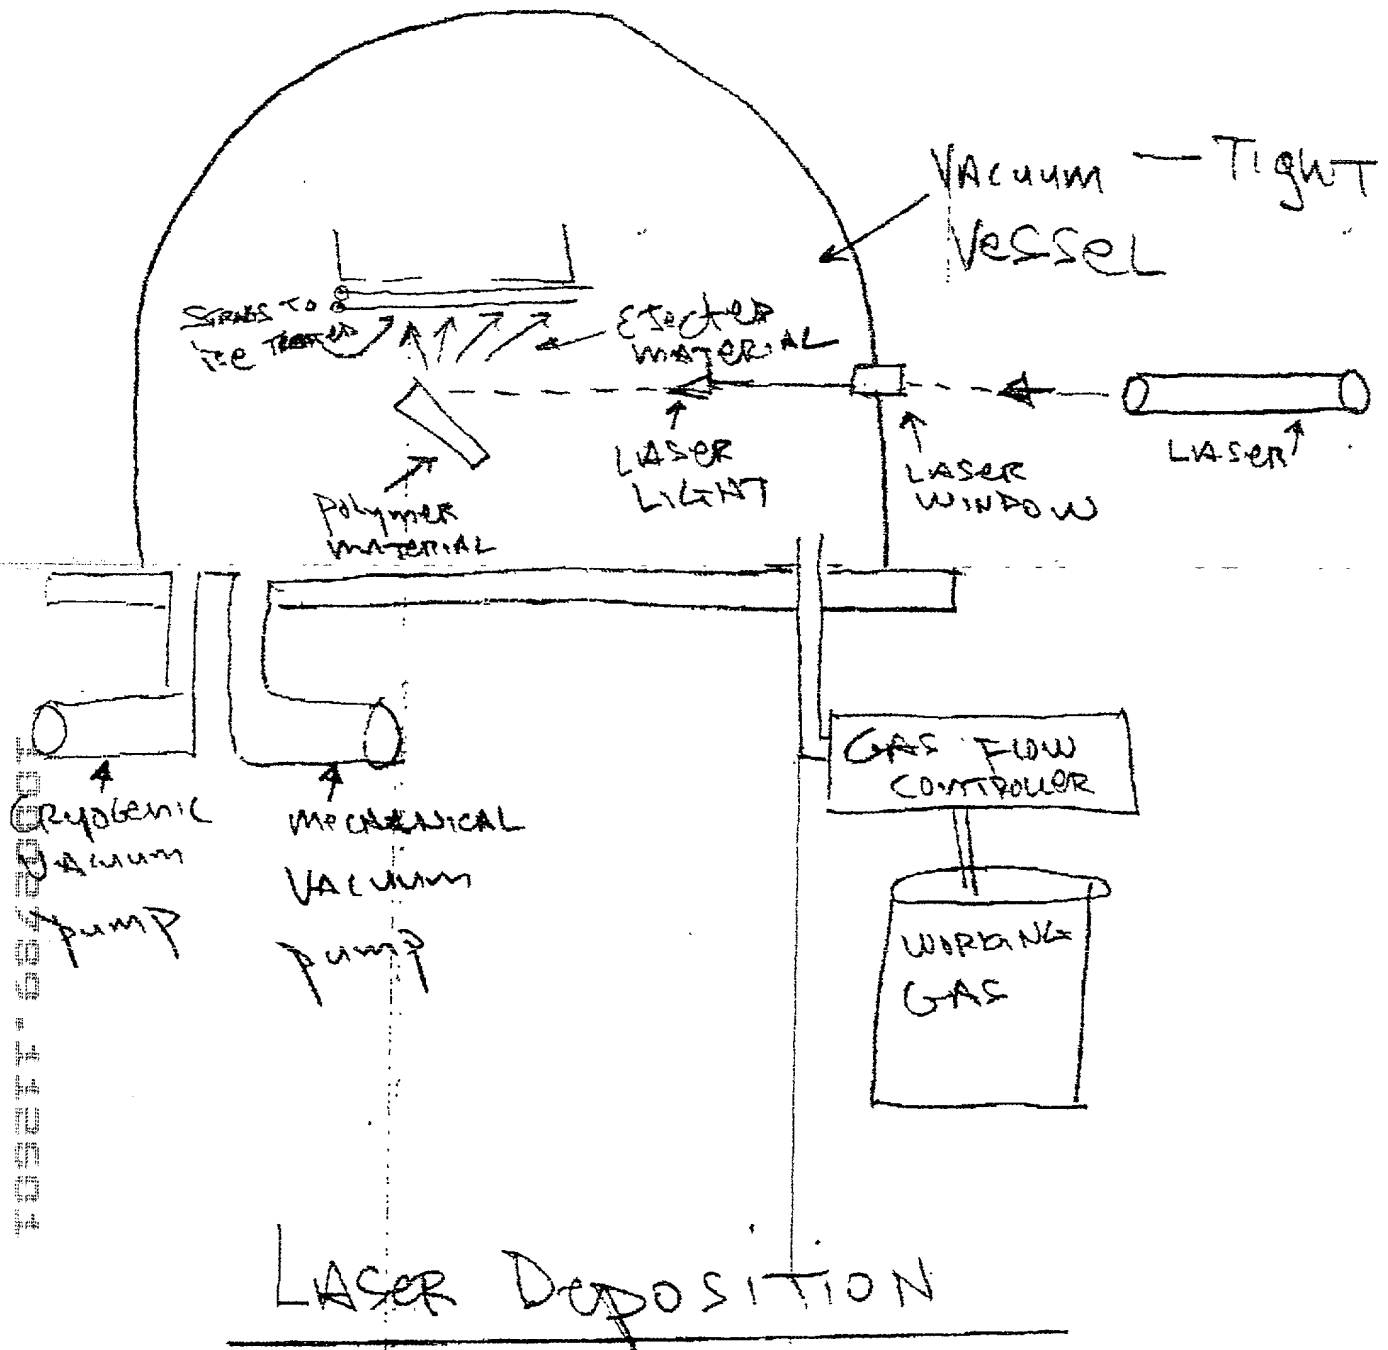 VACUUM — TighT
Vessel
STRINGS TO
BE TREATED
EJECTED
MATERIAL
LASER
LIGHT
LASER
WINDOW
LASER
polymer
MATERIAL
CRYOGENIC
VACUUM
pump
MECHANICAL
VACUUM
pump
GAS FLOW
CONTROLLER
WORKING
GAS
LASER DepOSITION